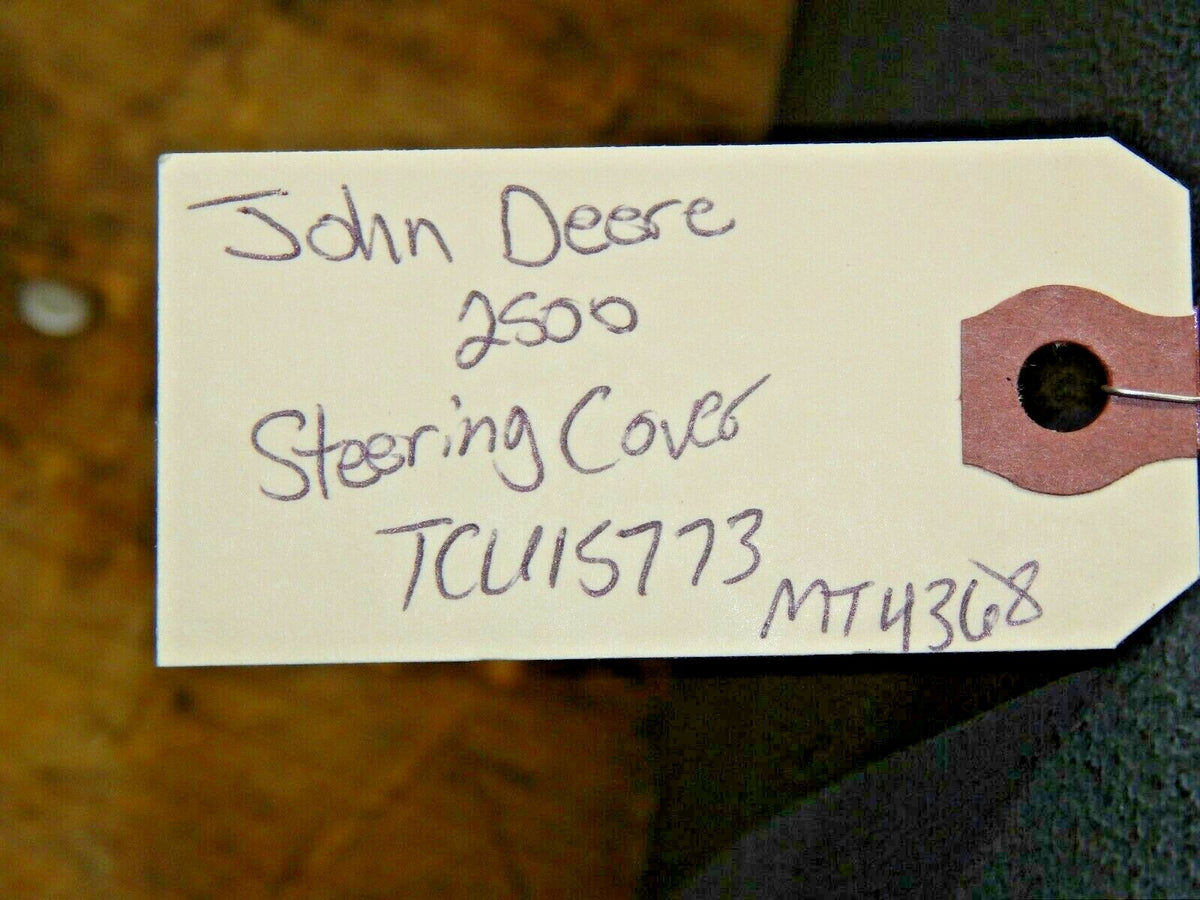 John Deere
2500
Steering Cover
TCU15773
MT4368